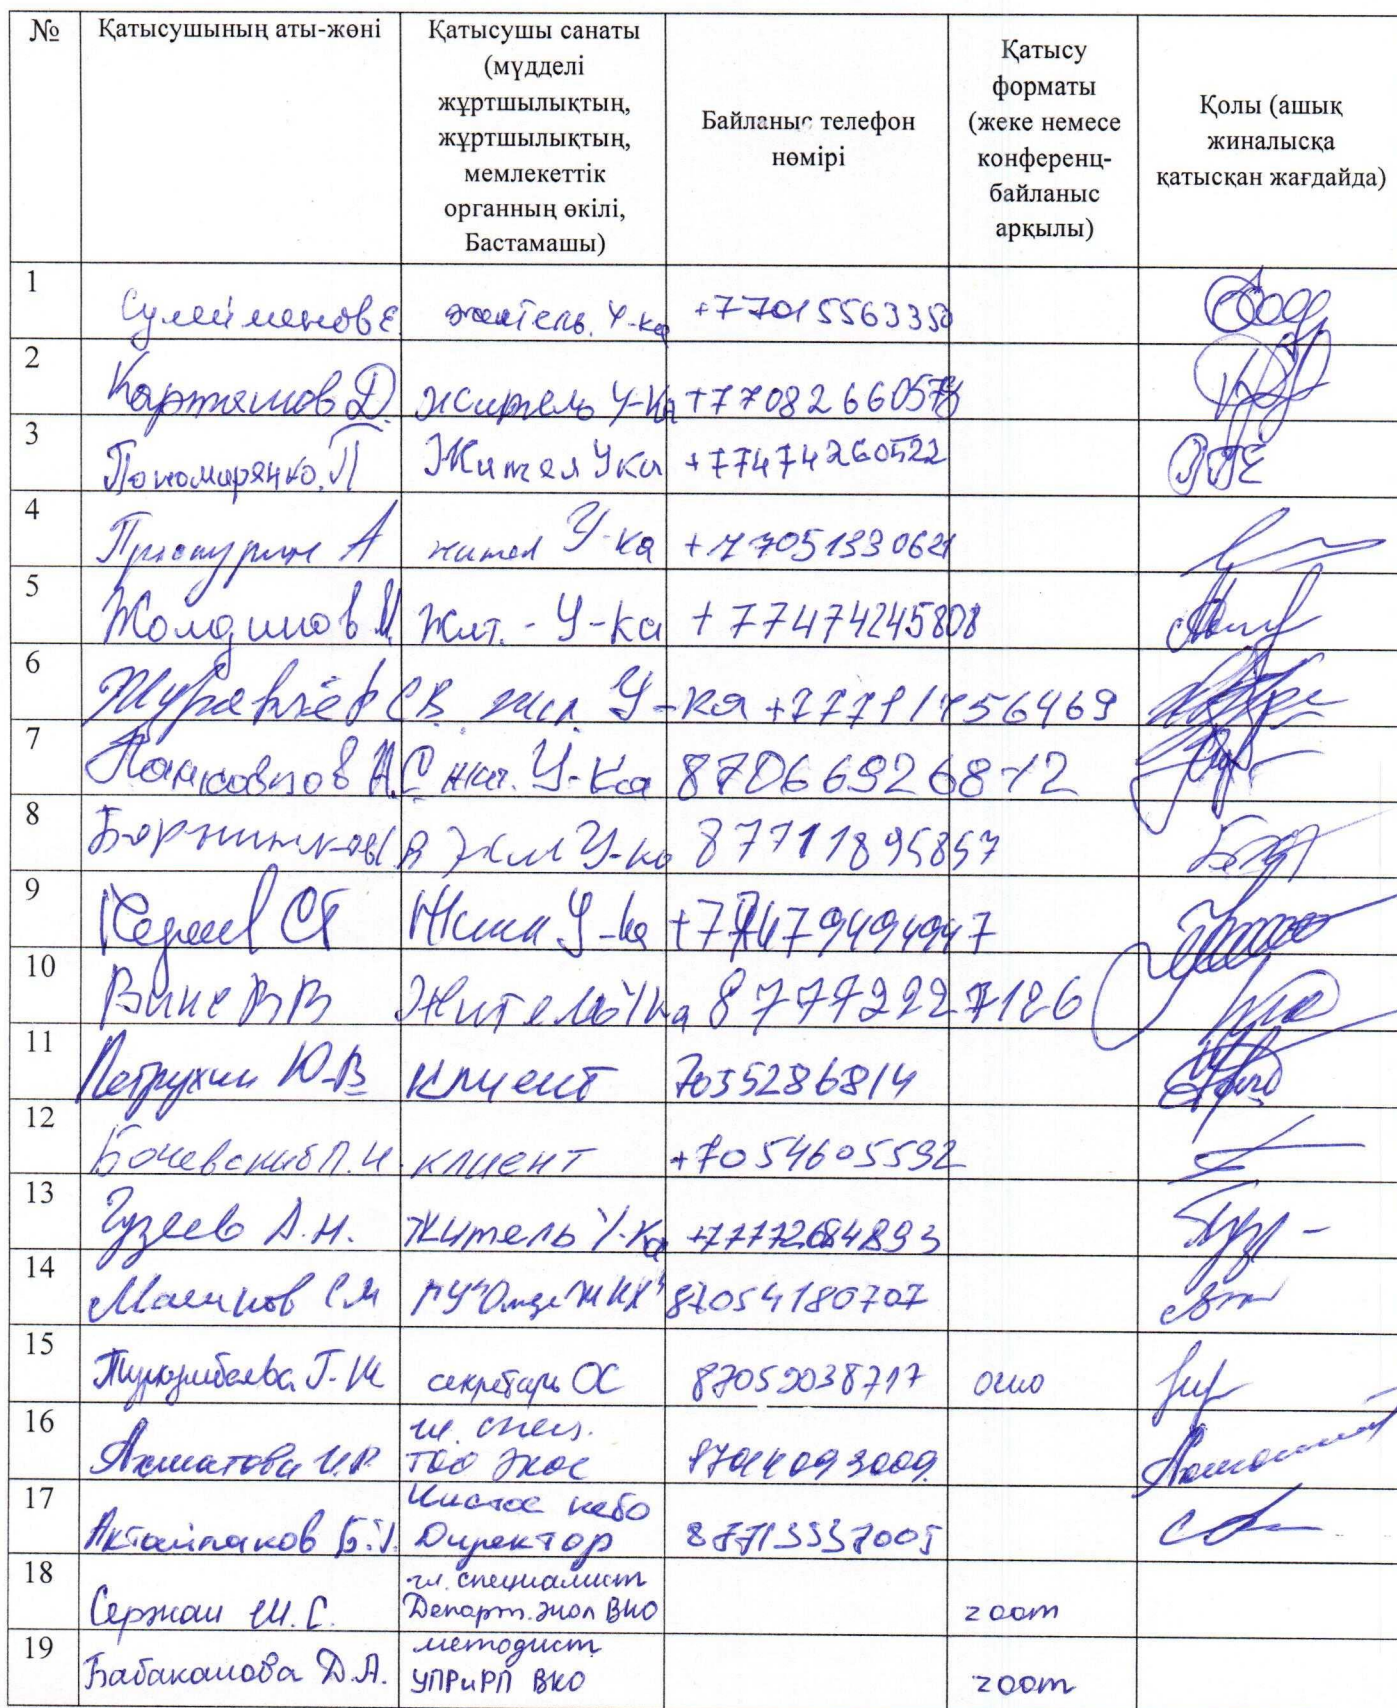 № Қатысушының аты-жөні Қатысушы санаты (мүдделі жұртшылықтың, жұртшылықтың, мемлекеттік органның өкілі, Бастамашы) Байланыс телефон нөмірі Қатысу форматы (жеке немесе конференц-байланыс арқылы) Қолы (ашық жиналысқа қатысқан жағдайда)
1 Сулейменов Е. житель У-ка +77015563350
2 Карташов Д. житель У-Ка +7708266057
3 Пономаренко. П Жител Ука +77474260522
4 А жител У-ка +77051330621
5 М. Жит. - У-ка +77474245808
6 Журавлёв С.В. жил. У-ка +77711756469
7 жит. У-ка 87066926872
8 Жил У-ка 87711895857
9 С У-ка +77479494947
10 Винс В В Житель Ука 87772227126
11 Петрухин Ю.В клиент 70352286814
12 Бочевский П.И. клиент +7054605592
13 Гузеев А.Н. житель У-Ка +77772684893
14 С М ГУ "Отдел ЖКХ" 87054180707
15 Г.Ж секретарь ОС 87052038717 очно
16 Ахматова И.Р. гл. спец.
ТОО Экос 87014093009
17 Чистое небо
Актайлаков Б. Директор 87713337005
18 гл. специалист
Сержан Ш.С. Департ. экол ВКО zoom
19 методист
Бабаканова Д.А. УПРиРП ВКО zoom